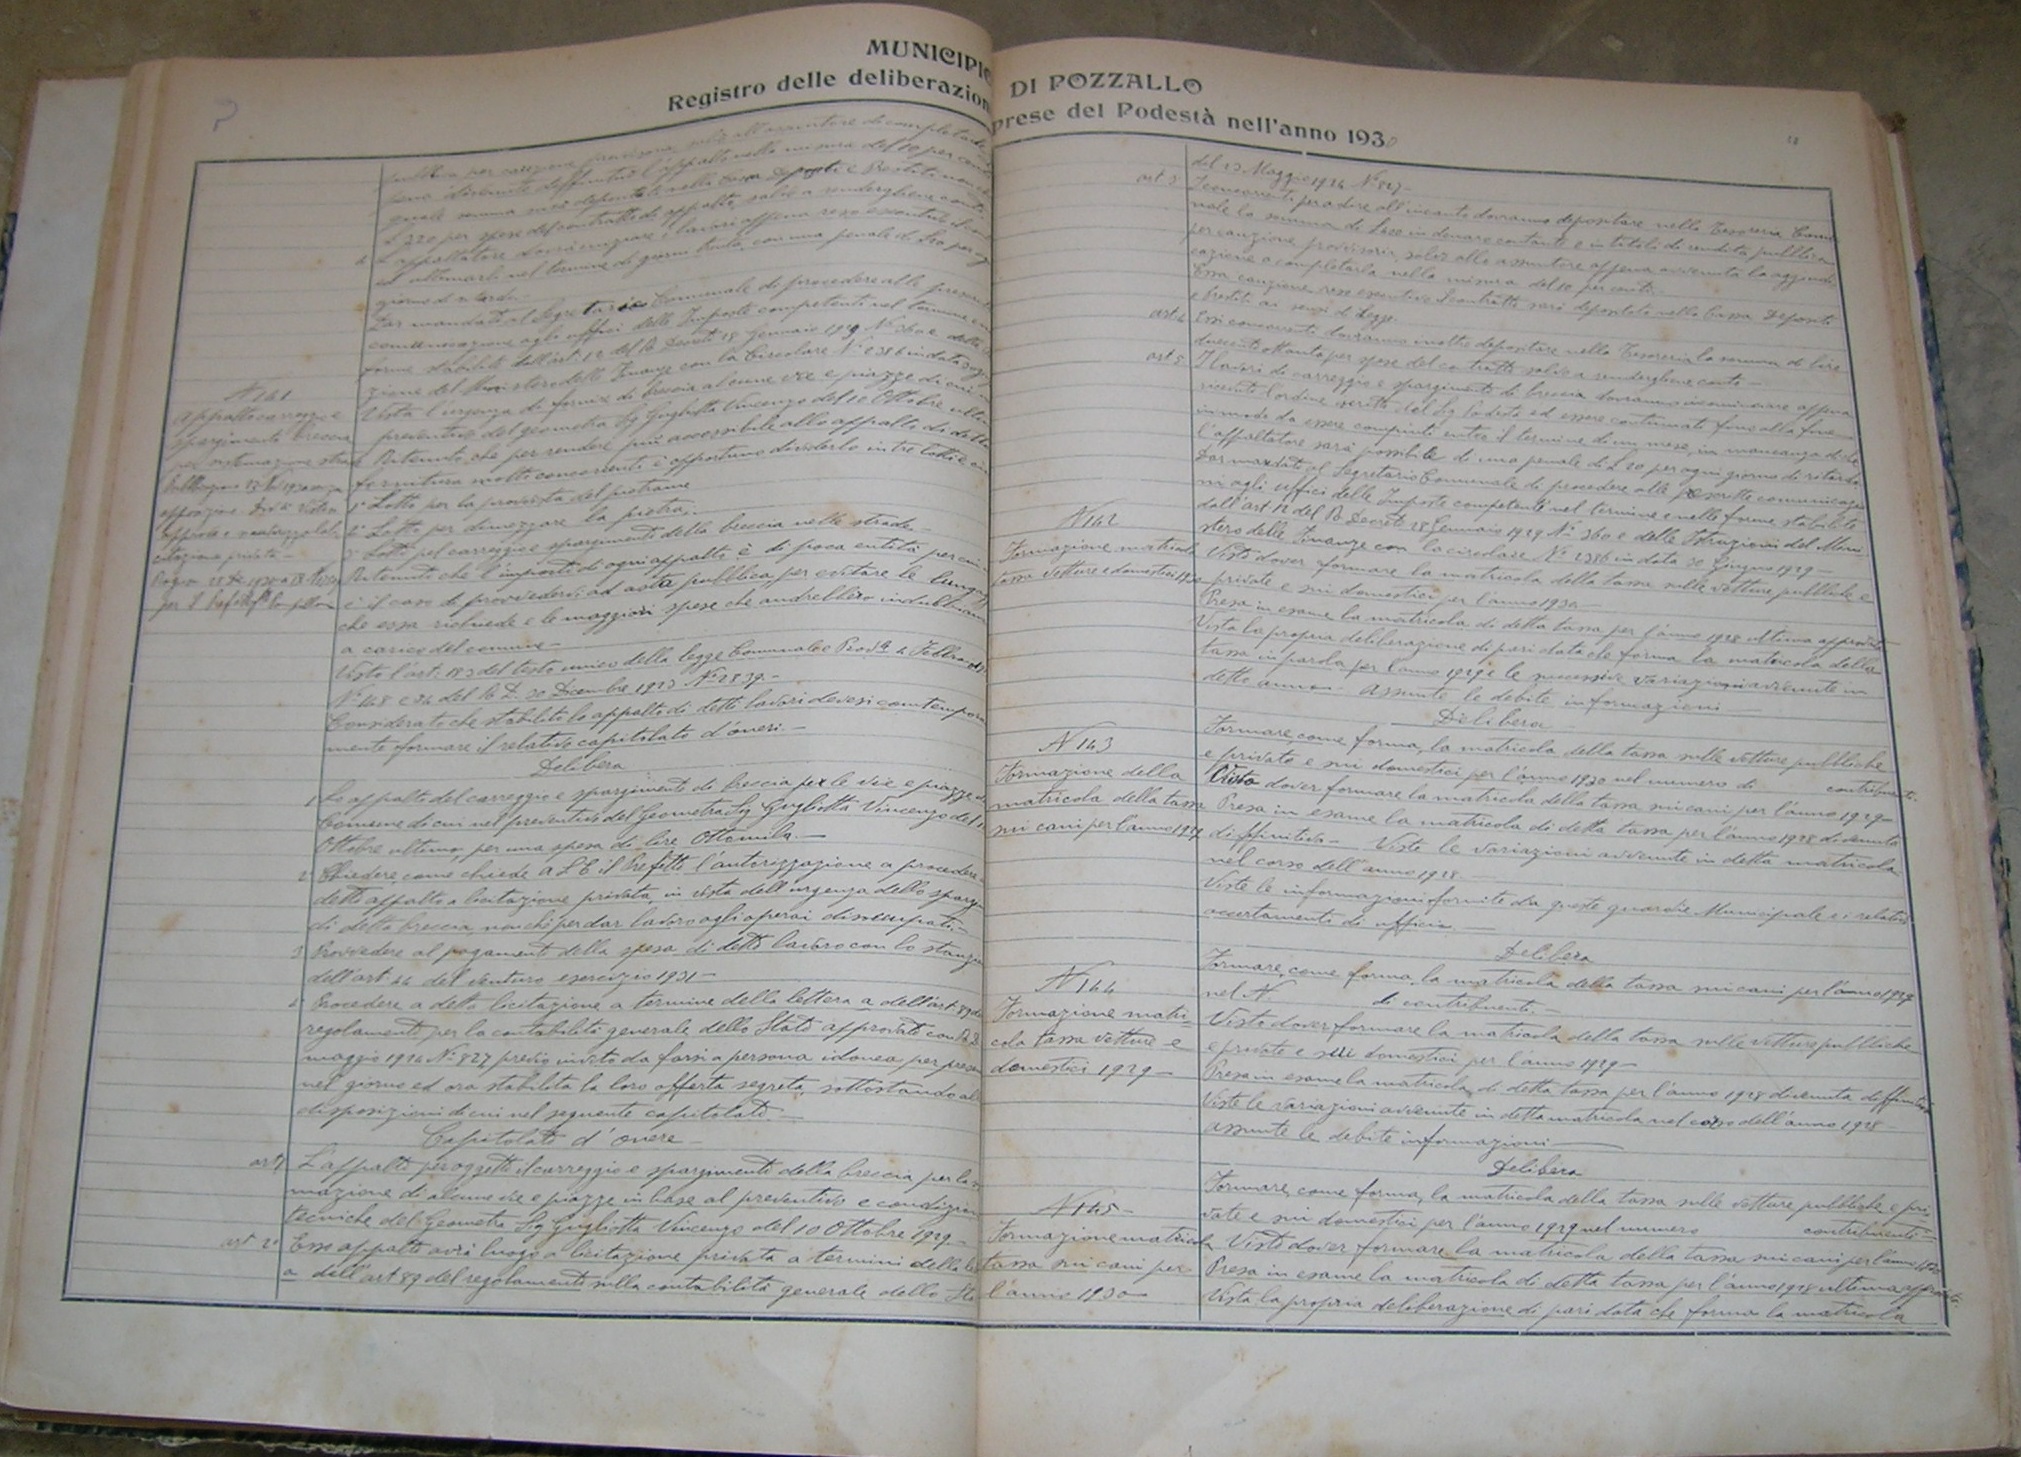 MUNICIPIO DI POZZALLO
Registro delle deliberazioni prese del Podestà nell'anno 1930
giorno di ritardo.
Dar mandato al Segretario Comunale di procedere alle prescritte
comunicazione agli uffici delle Imposte competenti nel termine e
forme stabilite dall'art. 12 del R. Decreto 28 Gennaio 1929 N° 360 e delle
zione del Ministero delle Finanze con la Circolare N° 2386 in data 30
N 141
Appalto carreggio e
spargimento breccia
per sistemazione strade
Vista l'urgenza di fornire di breccia alcune vie e piazze di cui
preventivo del geometra Sig Gugliotta Vincenzo del 10 Ottobre ultimo
Ritenuto che per rendere più accessibile allo appalto di detta
fornitura molti concorrenti è opportuno dividerlo in tre lotti e
1° Lotto per la provvista del pietrame
2° Lotto per dimezzare la pietra.
3° Lotto pel carreggio e spargimento della breccia nelle strade.
Ritenuto che l'importo di ogni appalto è di poca entità per cui
è il caso di provvedervi ad asta pubblica, per evitare le
che essa richiede e le maggiori spese che andrebbero
a carico del comune.
Visto l'art. 183 del testo unico della legge Comunale e Prov.le 4 Febbraio
N° 148 e 34 del R. D. 30 Dicembre 1923 N° 2839.
Considerato che stabilito lo appalto di detti lavori devesi contempora
mente formare il relativo capitolato d'oneri.
Delibera
1 Lo appalto del carreggio e spargimento di breccia per le vie e piazze
Comune di cui nel preventivo del Geometra Sig Gugliotta Vincenzo del
Ottobre ultimo, per una spesa di lire Ottomila.
2° Chiedere, come chiede a S. E. il Prefetto l'autorizzazione a procedere
detto appalto a licitazione privata, in vista dell'urgenza dello sparg
di detta breccia, nonchè per dar lavoro agli operai disoccupati.
3 Provvedere al pagamento della spesa di detto lavoro con lo stanz
dell'art. 44 del venturo esercizio 1931
Procedere a detta licitazione a termine della lettera a dell'art. 89 del
regolamento per la contabilità generale dello Stato approvato con R. D.
maggio 1924 N° 827 previo invito da farsi a persona idonea, per presen
nel giorno ed ora stabilita la loro offerta segreta, sottostando al
disposizioni di cui nel seguente capitolato.
Capitolato d'onere
art. 1 L'appalto per oggetto il carreggio e spargimento della breccia per la
mazione di alcune vie e piazze in base al preventivo e condizioni
tecniche del Geometra Sig Gugliotta Vincenzo del 10 Ottobre 1929.
art 2° Esso appalto avrà luogo a licitazione privata a termini della
a dell'art 89 del regolamento sulla contabilità generale dello
del 23 Maggio 1924 N° 827
art. 3° I concorrenti per adire all'incanto dovranno depositare nella Tesoreria Comu
nale la somma di L. 400 in denaro contante o in titoli di rendita pubblica
per cauzione provvisoria, salvo allo assuntore appena avvenuta la aggiudi
cazione a completarla nella misura del 10 per cento.
Essa cauzione reso esecutivo il contratto sarà depositata nella Cassa Depositi
e Prestiti ai sensi di legge.
art 4 Essi concorrenti dovranno inoltre depositare nella Tesoreria la somma di lire
duecento ottanta per spese del contratto salvo a rendergliene conto
art 5° I lavori di carreggio e spargimento di breccia dovranno incominciare appena
ricevuto l'ordine scritto del Sig Podestà ed essere continuati fino alla fine
in modo da essere compiuti entro il termine di un mese, in mancanza di che
l'appaltatore sarà passibile di una penale di L 20 per ogni giorno di ritardo
Dar mandato al Segretario Comunale di procedere alle prescritte comunicazio
ni agli uffici delle Imposte competenti nel termine e nelle forme stabilite
dall'art. 12 del R. Decreto 28 Gennaio 1929 N° 360 e delle Istruzioni del Mini
stero delle Finanze con la circolare N° 2386 in data 30 Giugno 1929
N 142
Formazione matricola
tassa vetture e domestici 1930
Visto dover formare la matricola della tassa sulle vetture pubbliche e
private e sui domestici per l'anno 1930
Presa in esame la matricola di detta tassa per l'anno 1928 ultima approvata
Vista la propria deliberazione di pari data che forma la matricola della
tassa in parola per l'anno 1929 e le successive variazioni avvenute in
detto anno. Assunte le debite informazioni
Delibera
Formare, come forma, la matricola della tassa sulle vetture pubbliche
e private e sui domestici per l'anno 1930 nel numero di contribuenti.
N 143
Formazione della
matricola della tassa
sui cani per l'anno 1929
Visto dover formare la matricola della tassa sui cani per l'anno 1929
Presa in esame la matricola di detta tassa per l'anno 1928 divenuta
diffinitiva. Viste le variazioni avvenute in detta matricola
nel corso dell'anno 1928.
Viste le informazioni fornite da queste guardie Municipale e i relativi
accertamenti di ufficio.
Delibera
Formare, come forma, la matricola della tassa sui cani per l'anno 1929
nel N. di contribuenti.
N 144
Formazione matri
cola tassa vetture e
domestici 1929
Visto dover formare la matricola della tassa sulle vetture pubbliche
e private e sui domestici per l'anno 1929
Presa in esame la matricola di detta tassa per l'anno 1928 divenuta diffinitiva
Viste le variazioni avvenute in detta matricola nel corso dell'anno 1928
Assunte le debite informazioni
Delibera
Formare, come forma, la matricola della tassa sulle vetture pubbliche e pri
vate e sui domestici per l'anno 1929 nel numero contribuenti
N 145
Formazione matricola
tassa sui cani per
l'anno 1930
Visto dover formare la matricola della tassa sui cani per l'anno 1930
Presa in esame la matricola di detta tassa per l'anno 1928 ultima approvata
Vista la propria deliberazione di pari data che forma la matricola